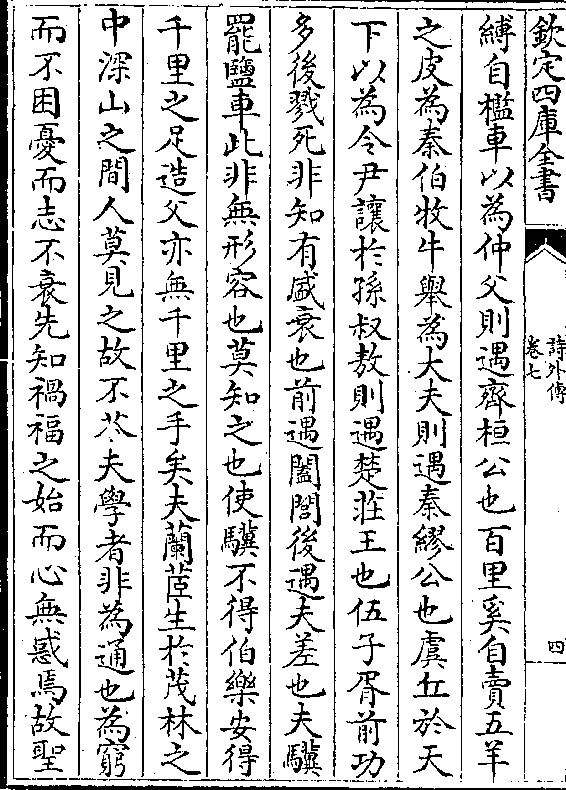 欽定四庫全書
詩外傳
卷七
四
縛自檻車以為仲父則遇齊桓公也百里奚自賣五羊
之皮為秦伯牧牛舉為大夫則遇秦繆公也虞丘於天
下以為令尹讓於孫叔敖則遇楚莊王也伍子胥前功
多後戮死非知有盛衰也前遇闔閭後遇夫差也夫驥
罷鹽車此非無形容也莫知之也使驥不得伯樂安得
千里之足造父亦無千里之手矣夫蘭茝生於茂林之
中深山之間人莫見之故不芬夫學者非為通也為窮
而不困憂而志不衰先知禍福之始而心無惑焉故聖